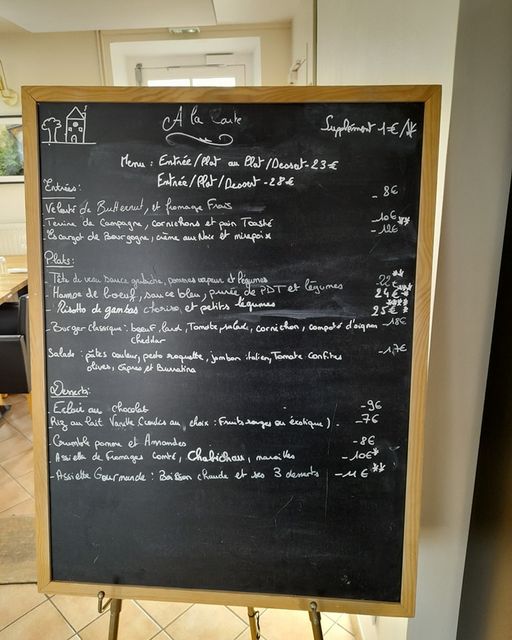 A la Carte
Supplément 1€/*
Menu : Entrée/Plat ou Plat/Dessert - 23€
Entrée/Plat/Dessert - 28€
Entrées :
- Velouté de Butternut, et fromage Frais - 8€
- Terrine de Campagne, cornichons et pain Toasté - 10€
- Escargot de Bourgogne, crème aux Noix et mirepoix - 12€**
Plats :
- Tête de veau sauce gribiche, pommes vapeur et légumes - 22**
- Hampe de boeuf, sauce bleu, purée de PDT et légumes 24€
- Risotto de gambas chorizo, et petits légumes 25€
- Burger classique : boeuf, lard, Tomate, salade, cornichon, compoté d'oignon - 18€
cheddar
- Salade : pâtes couleur, pesto roquette, jambon italien, Tomate confites - 17€
olives, câpres et Burratina
Desserts :
- Eclair au chocolat - 9€
Riz au lait Vanille (Coulis au choix : Fruits rouges ou éxotique) . - 7€
- Crumble pomme et Amandes - 8€
- Assiette de Fromages Comté, Chabichou, maroilles - 10€*
- Assiette Gourmande : Boisson chaude et ses 3 desserts - 11€**